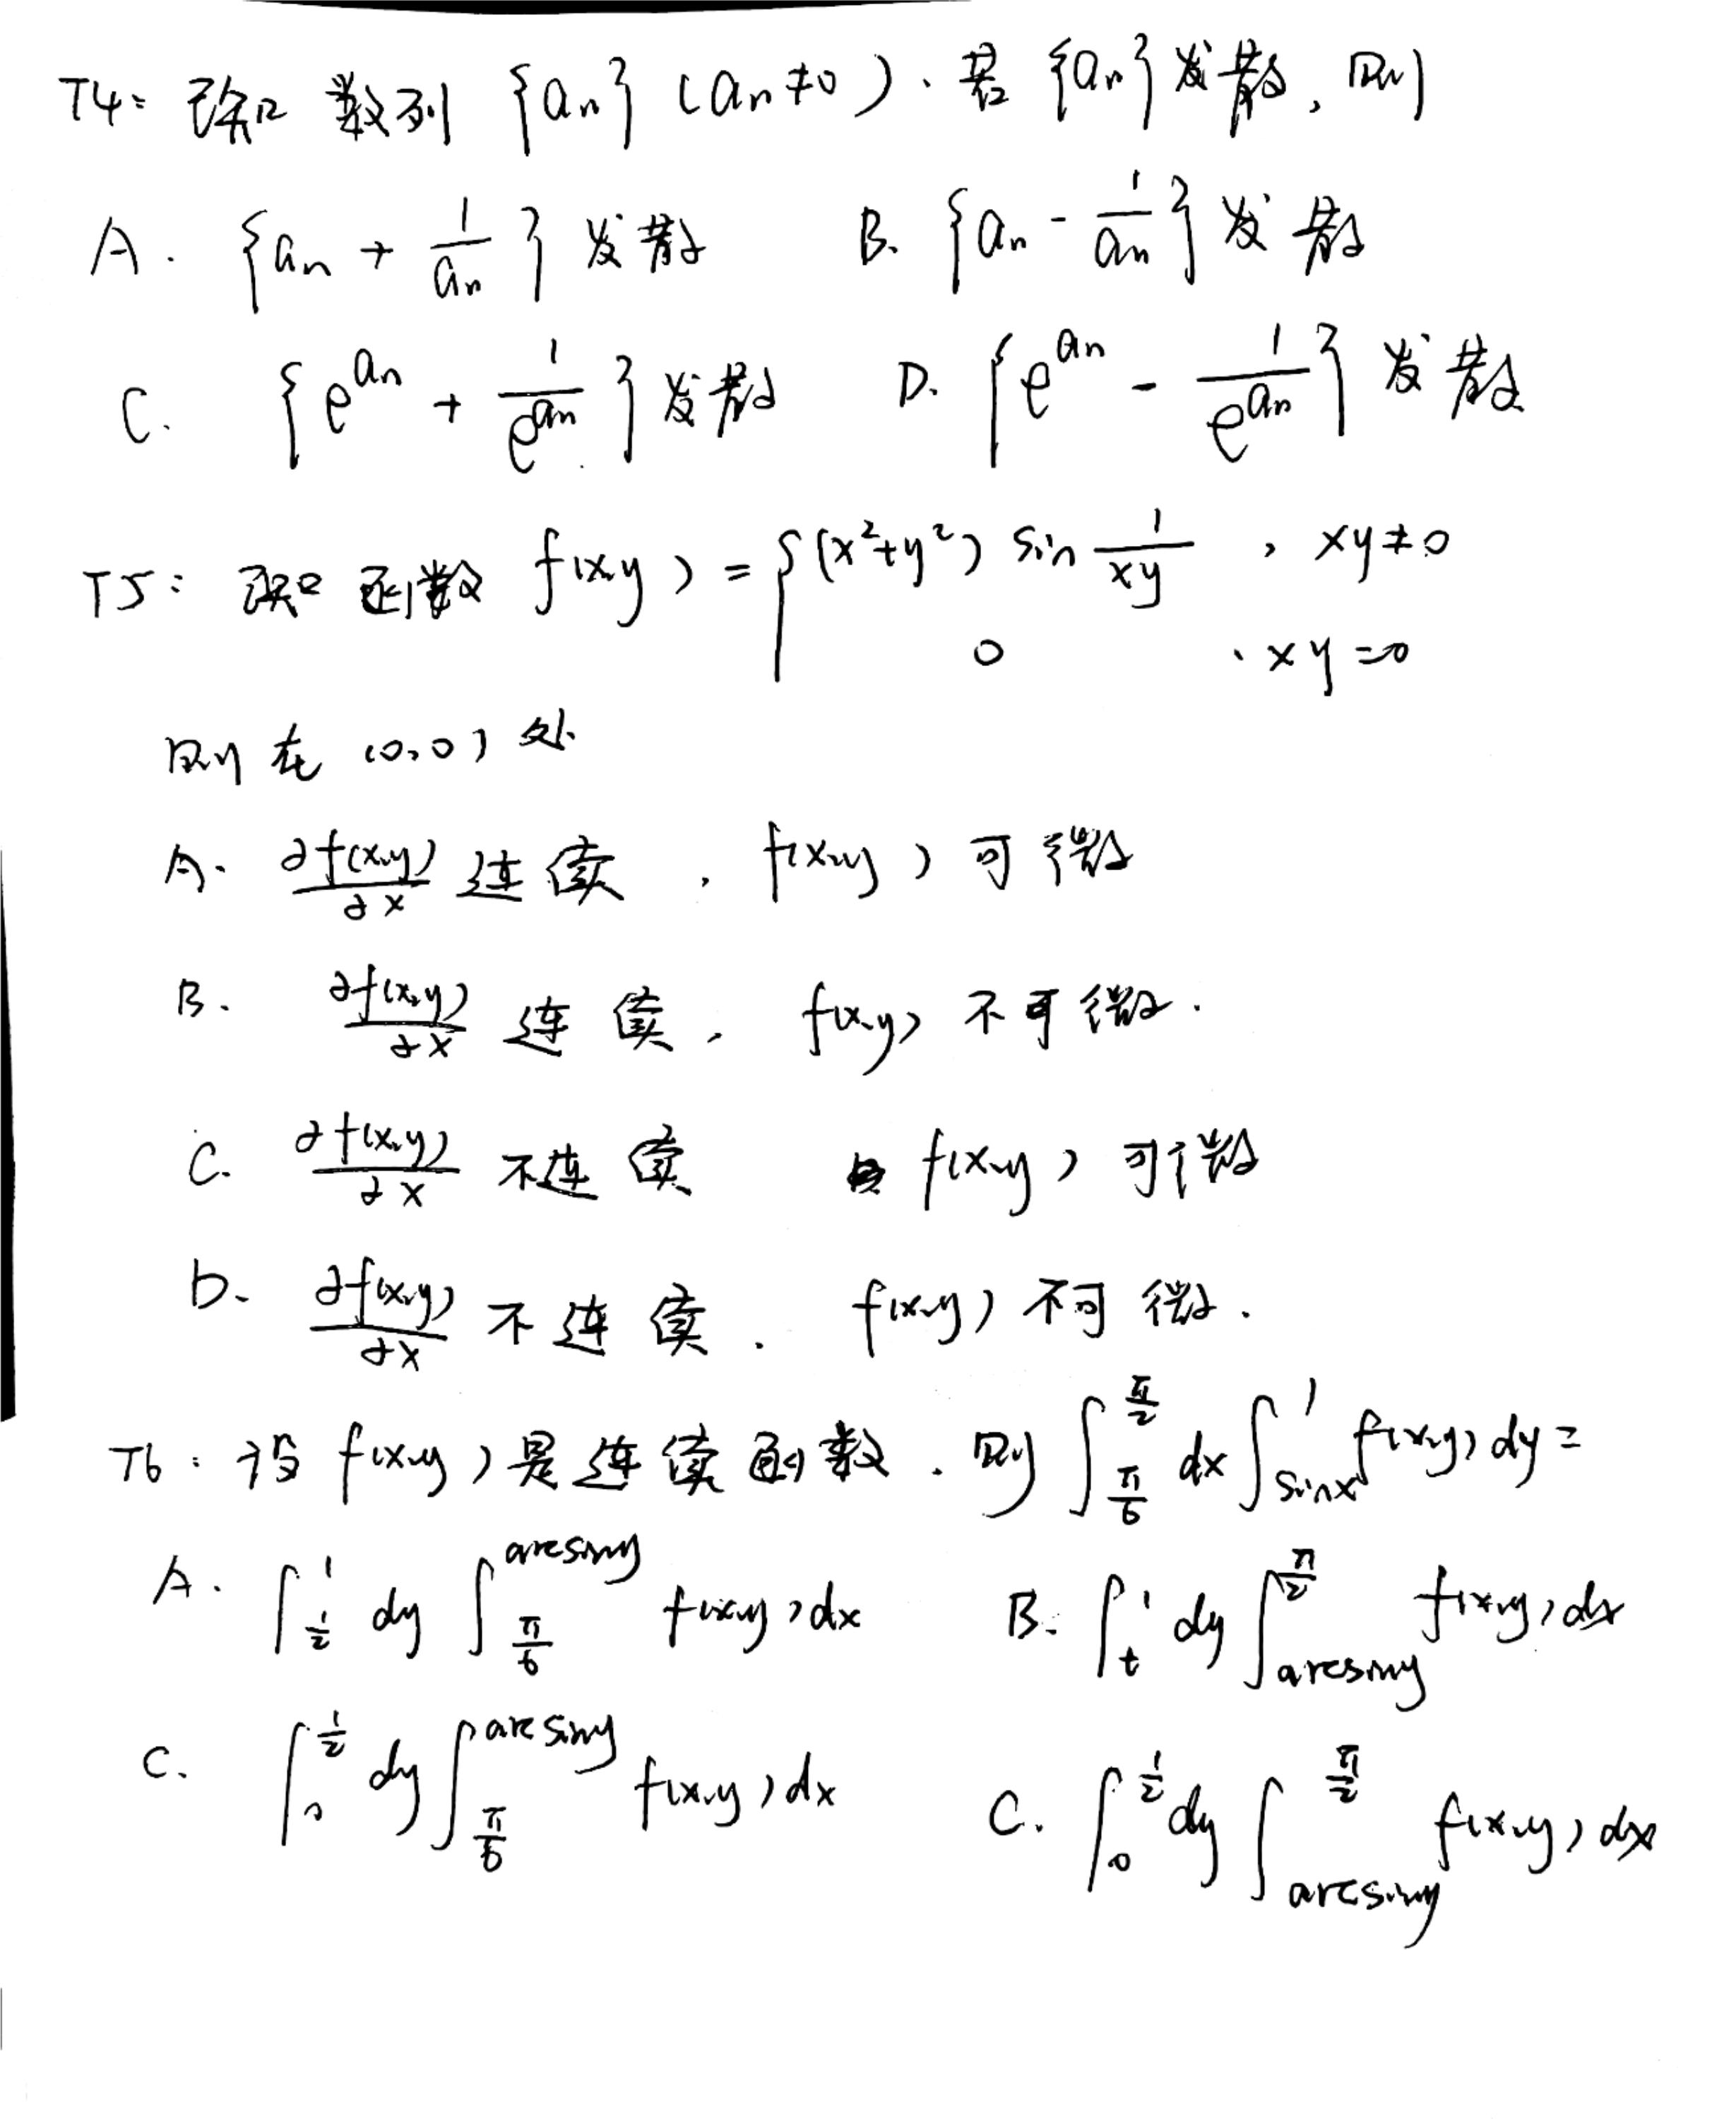 T4: 已知数列 {an} (an≠0). 若 {an} 发散, 则
A. {an + 1/an} 发散 B. {an - 1/an} 发散
C. {e^an + 1/e^an} 发散 D. {e^an - 1/e^an} 发散
T5: 已知函数 f(x,y) = { (x²+y²) sin 1/xy , xy≠0
0 , xy=0
则在 (0,0) 处
A. ∂f(x,y)/∂x 连续, f(x,y) 可微
B. ∂f(x,y)/∂x 连续, f(x,y) 不可微.
C. ∂f(x,y)/∂x 不连续 f(x,y) 可微
D. ∂f(x,y)/∂x 不连续. f(x,y) 不可微.
T6: 设 f(x,y) 是连续函数. 则 ∫_{π/6}^{π/2} dx ∫_{sinx}^{1} f(x,y) dy =
A. ∫_{1/2}^{1} dy ∫_{π/6}^{arcsiny} f(x,y) dx B. ∫_{t}^{1} dy ∫_{arcsiny}^{π/2} f(x,y) dx
C. ∫_{0}^{1/2} dy ∫_{π/6}^{arcsiny} f(x,y) dx C. ∫_{0}^{1/2} dy ∫_{arcsiny}^{π/2} f(x,y) dx